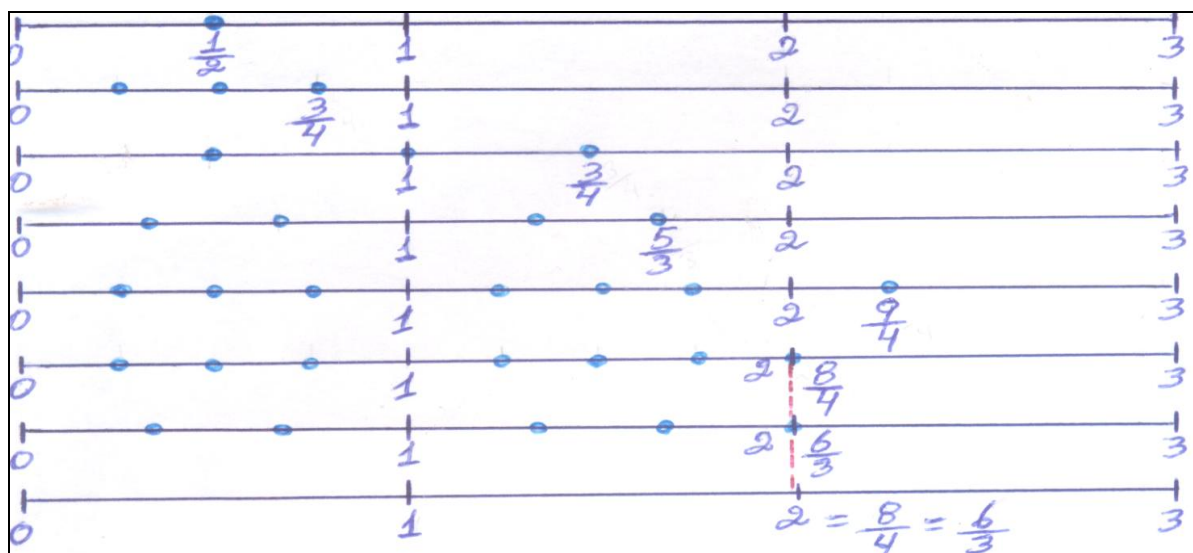 0 1/2 1 2 3
0 3/4 1 2 3
0 1 3/4 2 3
0 1 5/3 2 3
0 1 2 9/4 3
0 1 2 8/4 3
0 1 2 6/3 3
0 1 2 = 8/4 = 6/3 3